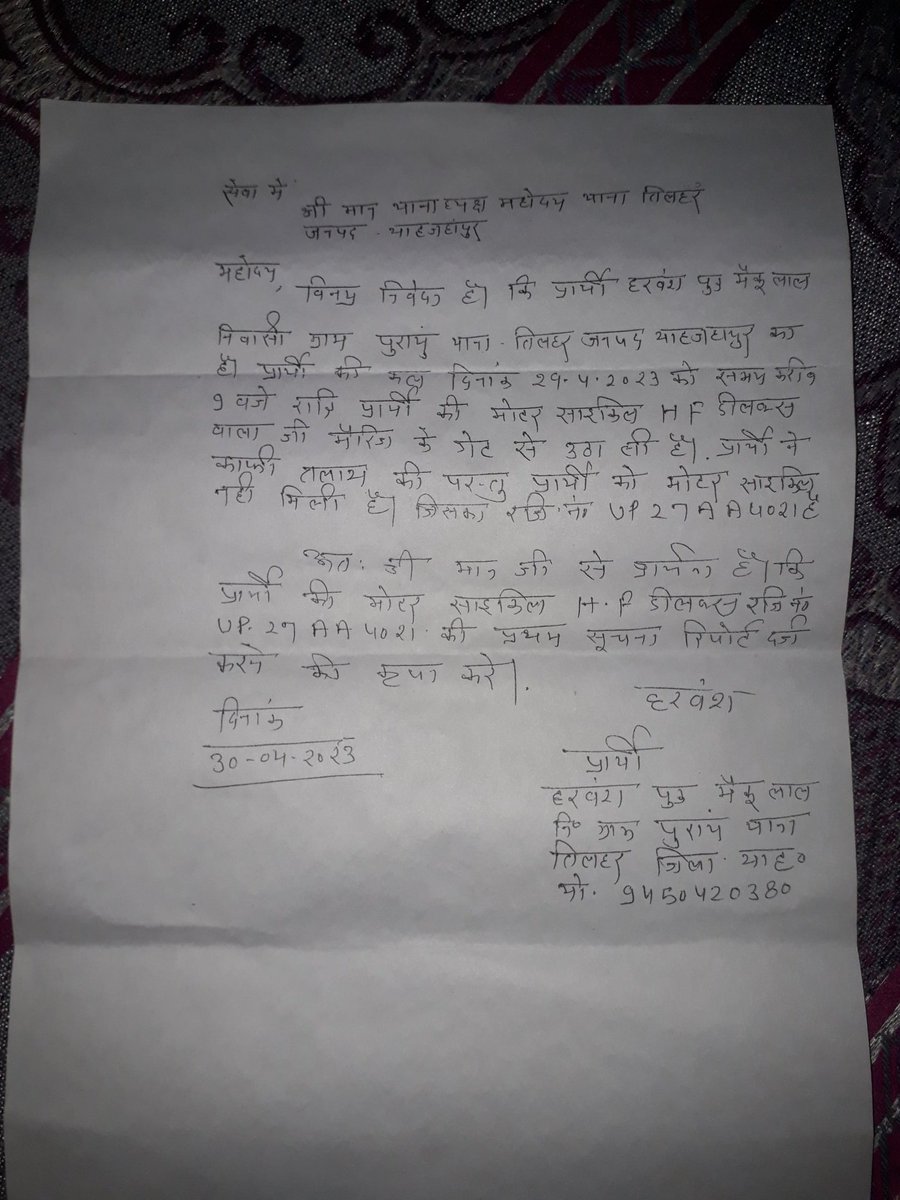 सेवा में
श्री मान थानाध्यक्ष महोदय थाना तिलहर
जनपद - शाहजहांपुर
महोदय,
विनम्र निवेदन है। कि प्रार्थी हरवंश पुत्र मैकू लाल
निवासी ग्राम पुरायुं थाना - तिलहर जनपद शाहजहांपुर का
है। प्रार्थी की कल दिनांक 29.4.2023 को समय करीब
9 बजे रात्रि प्रार्थी की मोटर साइकिल H F डीलक्स
वाला जी मैरिज के गेट से उठा ली है। प्रार्थी ने
काफी तलाश की परन्तु प्रार्थी को मोटर साइकिल
नही मिली है। जिसका रजि. नं UP 27 A A 4021 है
अतः श्री मान जी से प्रार्थना है। कि
प्रार्थी की मोटर साइकिल H.F डीलक्स रजि नं
UP. 27 A A 4021. की प्रथम सूचना रिपोर्ट दर्ज
करने की कृपा करे।
हरवंश
दिनांक
30-04-2023
प्रार्थी
हरवंश पुत्र मैकू लाल
नि० ग्राम पुरायं थाना
तिलहर जिला - शाह०
मो. 9450420380